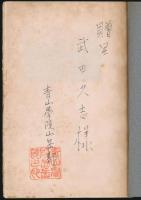 贈呈
武田久吉様
青山学院山岳部